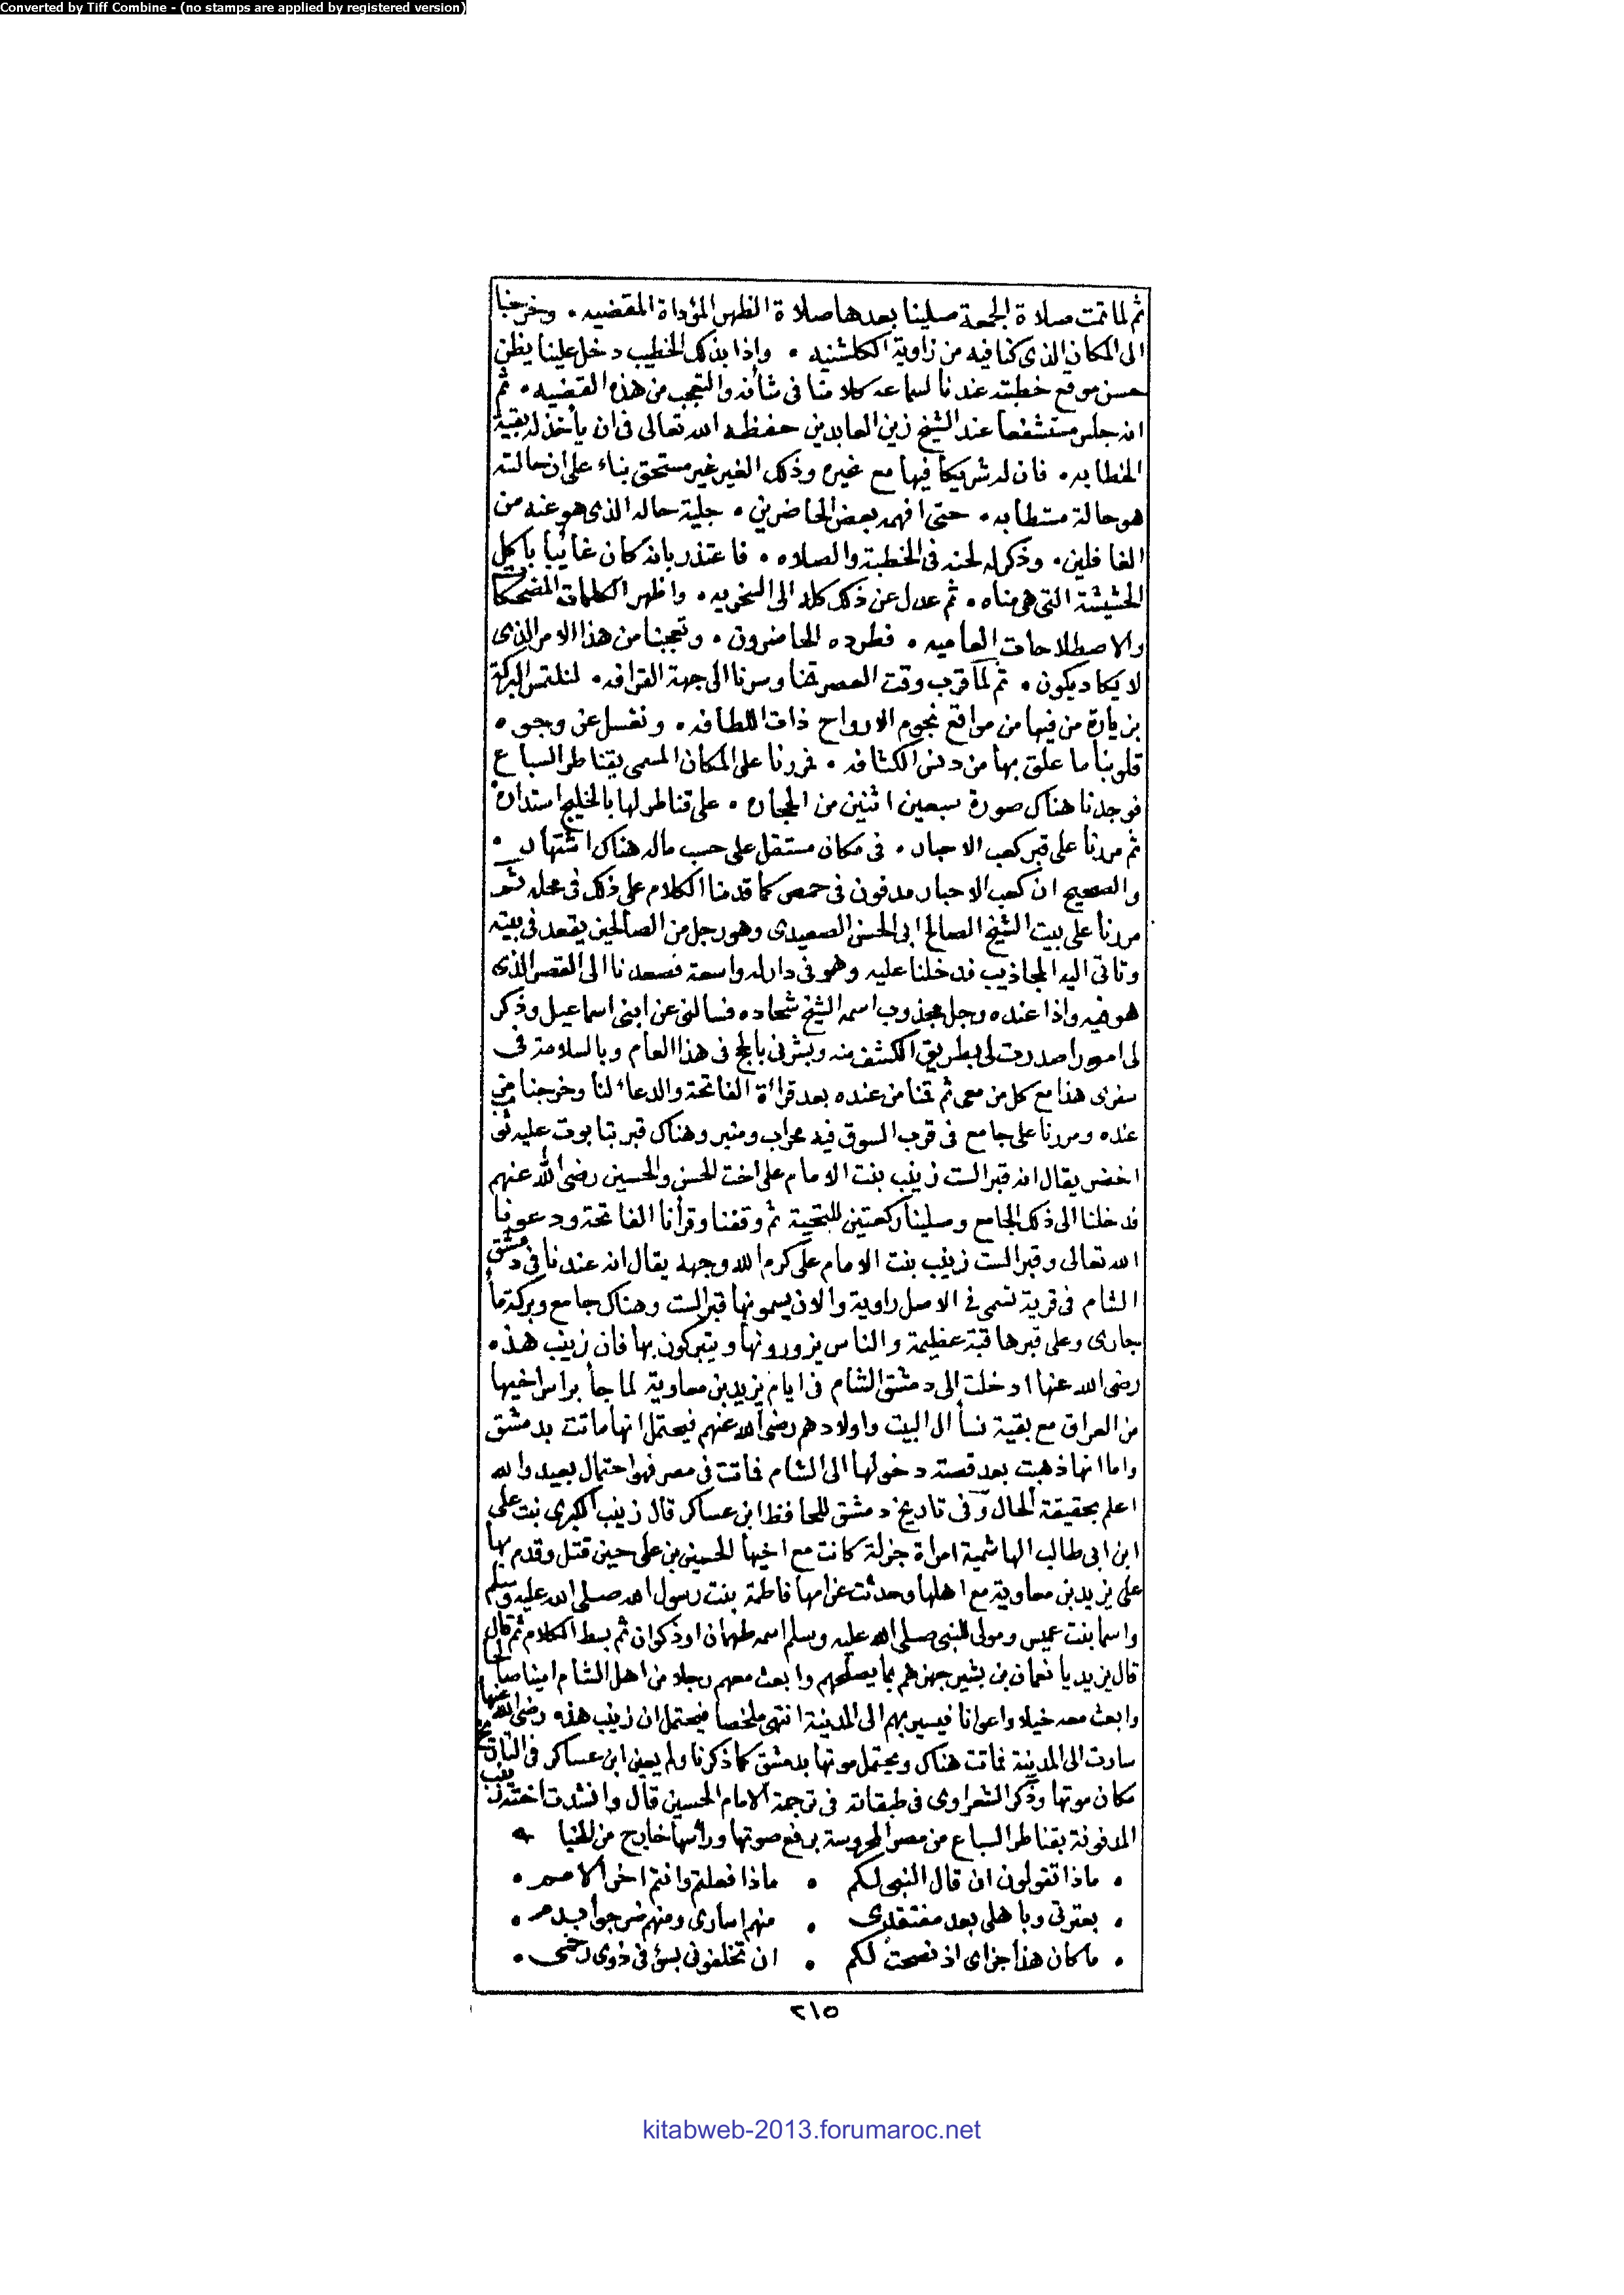 Converted by Tiff Combine - (no stamps are applied by registered version)
ثم لما تمت صلاة الجمعة صلينا بعدها صلاة الظهر المؤداة المقضيه ٠ وخرجنا
الى المكان الذى كنا فيه من زاوية الكلشنيه ٠ واذا بذلك الخطيب دخل علينا يظن
حسن موقع خطبته عندنا لسماعه كلامنا فى شأنه والتعجب من هذه القضيه ٠ ثم
انه جلس مستشفعا عند الشيخ زين العابدين حفظه الله تعالى فى ان يأخذ له بقية
الخطابه ٠ فان له شريكا فيها مع غيره وذلك الغير غير مستحق بناء على ان حالته
هو حالة مستطابه ٠ حتى افهمه بعض الحاضرين ٠ جلية حاله الذى هو عنه من
الغافلين ٠ وذكر له لحنه فى الخطبة والصلاه ٠ فاعتذر بانه كان غائبا باكل
الحشيشة التى هى مناه ٠ ثم عدل عن ذلك كله الى السخريه ٠ واظهر الكلمات المضحكا
والاصطلاحات العاميه ٠ فطرده الحاضرون ٠ وتعجبنا من هذا الامر الذى
لا يكاد يكون ٠ ثم لما قرب وقت العصر قمنا وسرنا الى جهة القرافه ٠ لنلتمس البركة
بزيارة من فيها من مواقع نجوم الارواح ذات اللطافه ٠ ونغسل عن وجوه
قلوبنا ما علق بها من دنس الكثافه ٠ فمررنا على المكان المسمى بقناطر السباع
فوجدنا هناك صورة سبعين اثنين من الحجاره ٠ على قناطر لها بالخليج استداره
ثم مررنا على قبر كعب الاحبار ٠ فى مكان مستقل على حسب ماله هناك اشتهار ٠
والصحيح ان كعب الاحبار مدفون فى حمص كما قدمنا الكلام على ذلك فى محله ثم
مررنا على بيت الشيخ الصالح ابى الحسن الصعيدى وهو رجل من الصالحين يقعد فى بيته
وتاتى اليه المجاذيب فدخلنا عليه وهو فى دار له واسعة فصعدنا الى القصر الذى
هو فيه واذا عنده رجل مجذوب اسمه الشيخ شحاده فسالنى عن ابنى اسماعيل وذكر
لى امورا صدرت لى بطريق الكشف منه وبشرنى بالحج فى هذا العام وبالسلامة فى
سفرى هذا مع كل من معى ثم قمنا من عنده بعد قرائة الفاتحة والدعاء لنا وخرجنا من
عنده ومررنا على جامع فى قرب السوق فيه محراب ومنبر وهناك قبر بتابوت عليه ثوب
اخضر يقال انه قبر الست زينب بنت الامام على اخت الحسن والحسين رضى الله عنهم
فدخلنا الى ذلك الجامع وصلينا ركعتين للتحية ثم وقفنا وقرأنا الفاتحة ودعونا
الله تعالى وقبر الست زينب بنت الامام على كرم الله وجهه يقال انه عندنا فى دمشق
الشام فى قرية تسمى فى الاصل راوية والان يسمونها قبر الست وهناك جامع وبركة ماء
جارى وعلى قبرها قبة عظيمة والناس يزورونها ويتبركون بها فان زينب هذه
رضى الله عنها ادخلت الى دمشق الشام فى ايام يزيد بن معاوية لما جاؤا براس اخيها
من العراق مع بقية نسأ ال البيت واولادهم رضى الله عنهم فيحتمل انها ماتت بدمشق
واما انها ذهبت بعد قصة دخولها الى الشام فماتت فى مصر فهو احتمال بعيد والله
اعلم بحقيقة الحال وفى تاريخ دمشق للحافظ ابن عساكر قال زينب الكبرى بنت على
ابن ابى طالب الهاشمية امراة جزلة كانت مع اخيها الحسين بن على حين قتل وقدم بها
على يزيد بن معاوية مع اهلها وحدثت عن امها فاطمة بنت رسول الله صلى الله عليه وسلم
واسما بنت عميس ومولى للنبى صلى الله عليه وسلم اسمه طهمان او ذكوان ثم بسط الكلام ثم قال
قال يزيد يا نعمان بن بشير جهزهم بما يصلحهم وابعث معهم رجلا من اهل الشام امينا صالحا
وابعث معه خيلا واعوانا فيسير بهم الى المدينة انتهى ملخصا فيحتمل ان زينب هذه رضى الله عنها
سارت الى المدينة فماتت هناك ويحتمل موتها بدمشق كما ذكرنا ولم يعين ابن عساكر فى التاريخ
مكان موتها وذكر الشعراوى فى طبقاته فى ترجمة الامام الحسين قال وانشدت اخته زينب
المدفونة بقناطر السباع من مصر المحروسة برفع صوتها ورأسها خارج من الخبا
٠ ماذا تقولون ان قال النبى لكم ٠ ماذا فعلتم وانتم اخر الامم ٠
٠ بعترتى وباهلى بعد مفتقدى ٠ منهم اسارى ومنهم ضرجوا بدم ٠
٠ ما كان هذا جزاى اذ نصحت لكم ٠ ان تخلفونى بسؤ فى ذوى رحمى ٠
٢١٥
kitabweb-2013.forumaroc.net